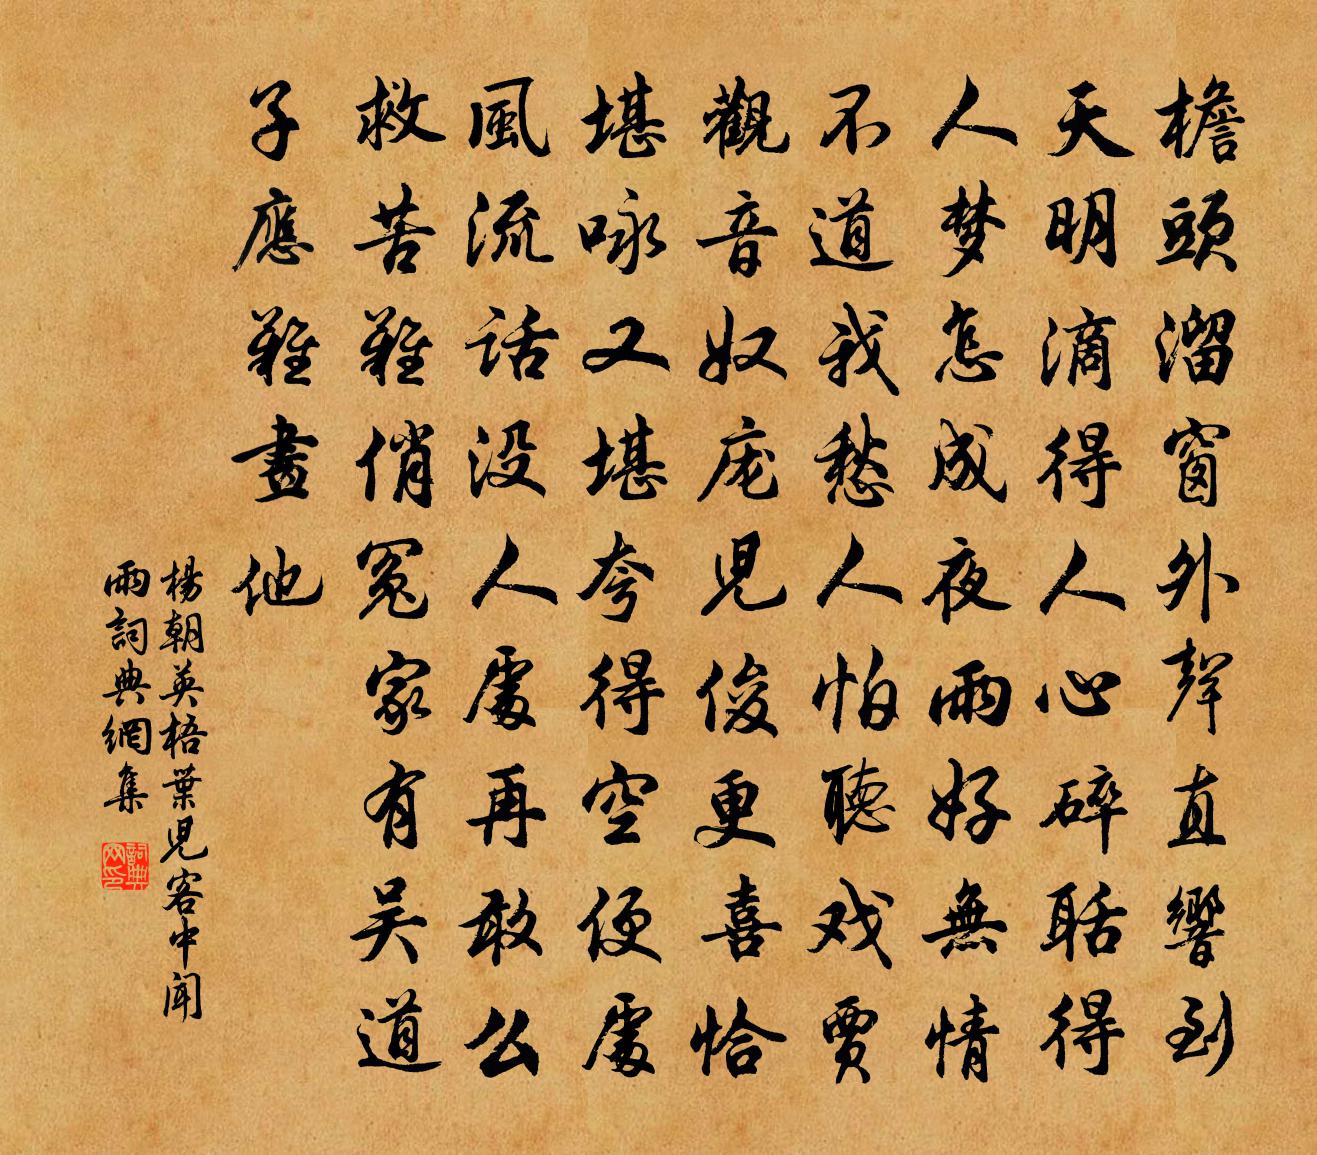 檐頭溜窗外聲直響到
天明滴得人心碎聒得
人梦怎成夜雨好無情
不道我愁人怕聽戏賈
觀音奴庞児俊更喜恰
堪咏又堪夸得空便處
風流話没人處再敢么
救苦難俏冤家有吴道
子應難畫他
楊朝英梧葉児客中闻
雨詞典網集
詞典网印